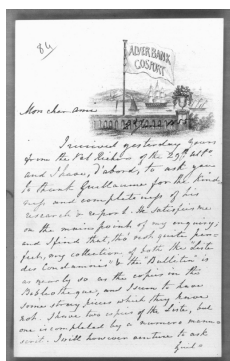 84
ALVERBANK
GOSPORT
Mon cher ami
I received yesterday yours
from the Val Richer of the 29th ult.
and I have, d'abord, to ask you
to thank Guillaume for the kind-
ness and completeness of his
research & report. He satisfies me
on the main points of my enquiry,
and I find that, tho not quite per-
fect, my collection of both the Liste
des Condamnés & the Bulletin is
as nearly so as the copies in the
Bibliothèque, and I seem to have
some stray pieces which they have
not. I have two copies of the Liste, but
one is completed by a numero manu-
scrit. I will however venture to ask